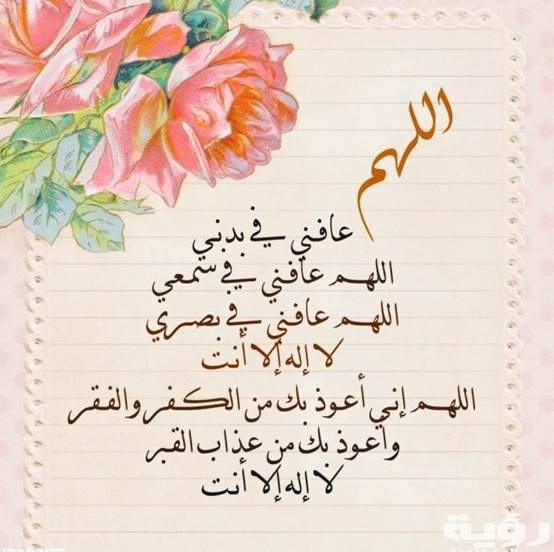 اللهم
عافني في بدني
اللهم عافني في سمعي
اللهم عافني في بصري
لا إله إلا أنت
اللهم إني أعوذ بك من الكفر والفقر
وأعوذ بك من عذاب القبر
لا إله إلا أنت
رؤية